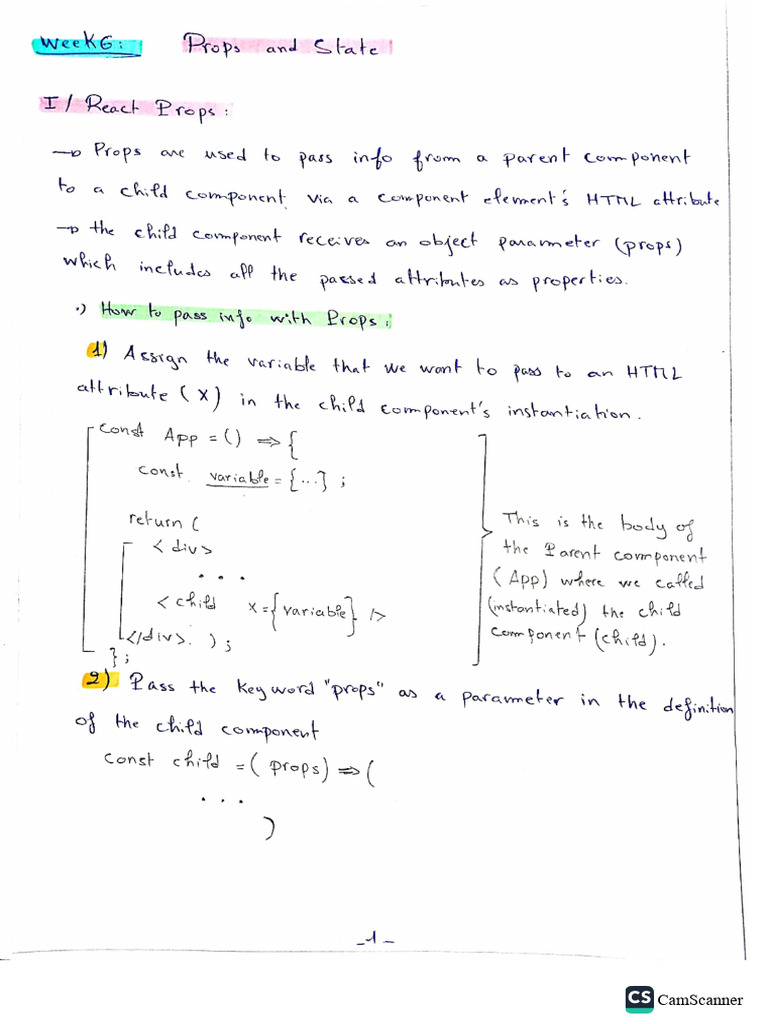 Week6: Props and State
I/ React Props:
→ Props are used to pass info from a parent component
to a child component via a component element's HTML attribute
→ the child component receives an object parameter (props)
which includes all the passed attributes as properties.
.) How to pass info with Props:
1) Assign the variable that we want to pass to an HTML
attribute (X) in the child component's instantiation.
const App = () => {
const variable = {...} ;
return (
<div>
...
<child X={variable} />
</div>. ) ;
};
This is the body of
the Parent component
(App) where we called
(instantiated) the child
component (child).
2) Pass the keyword "props" as a parameter in the definition
of the child component
const child = (props) => (
...
)
-1-
CS CamScanner